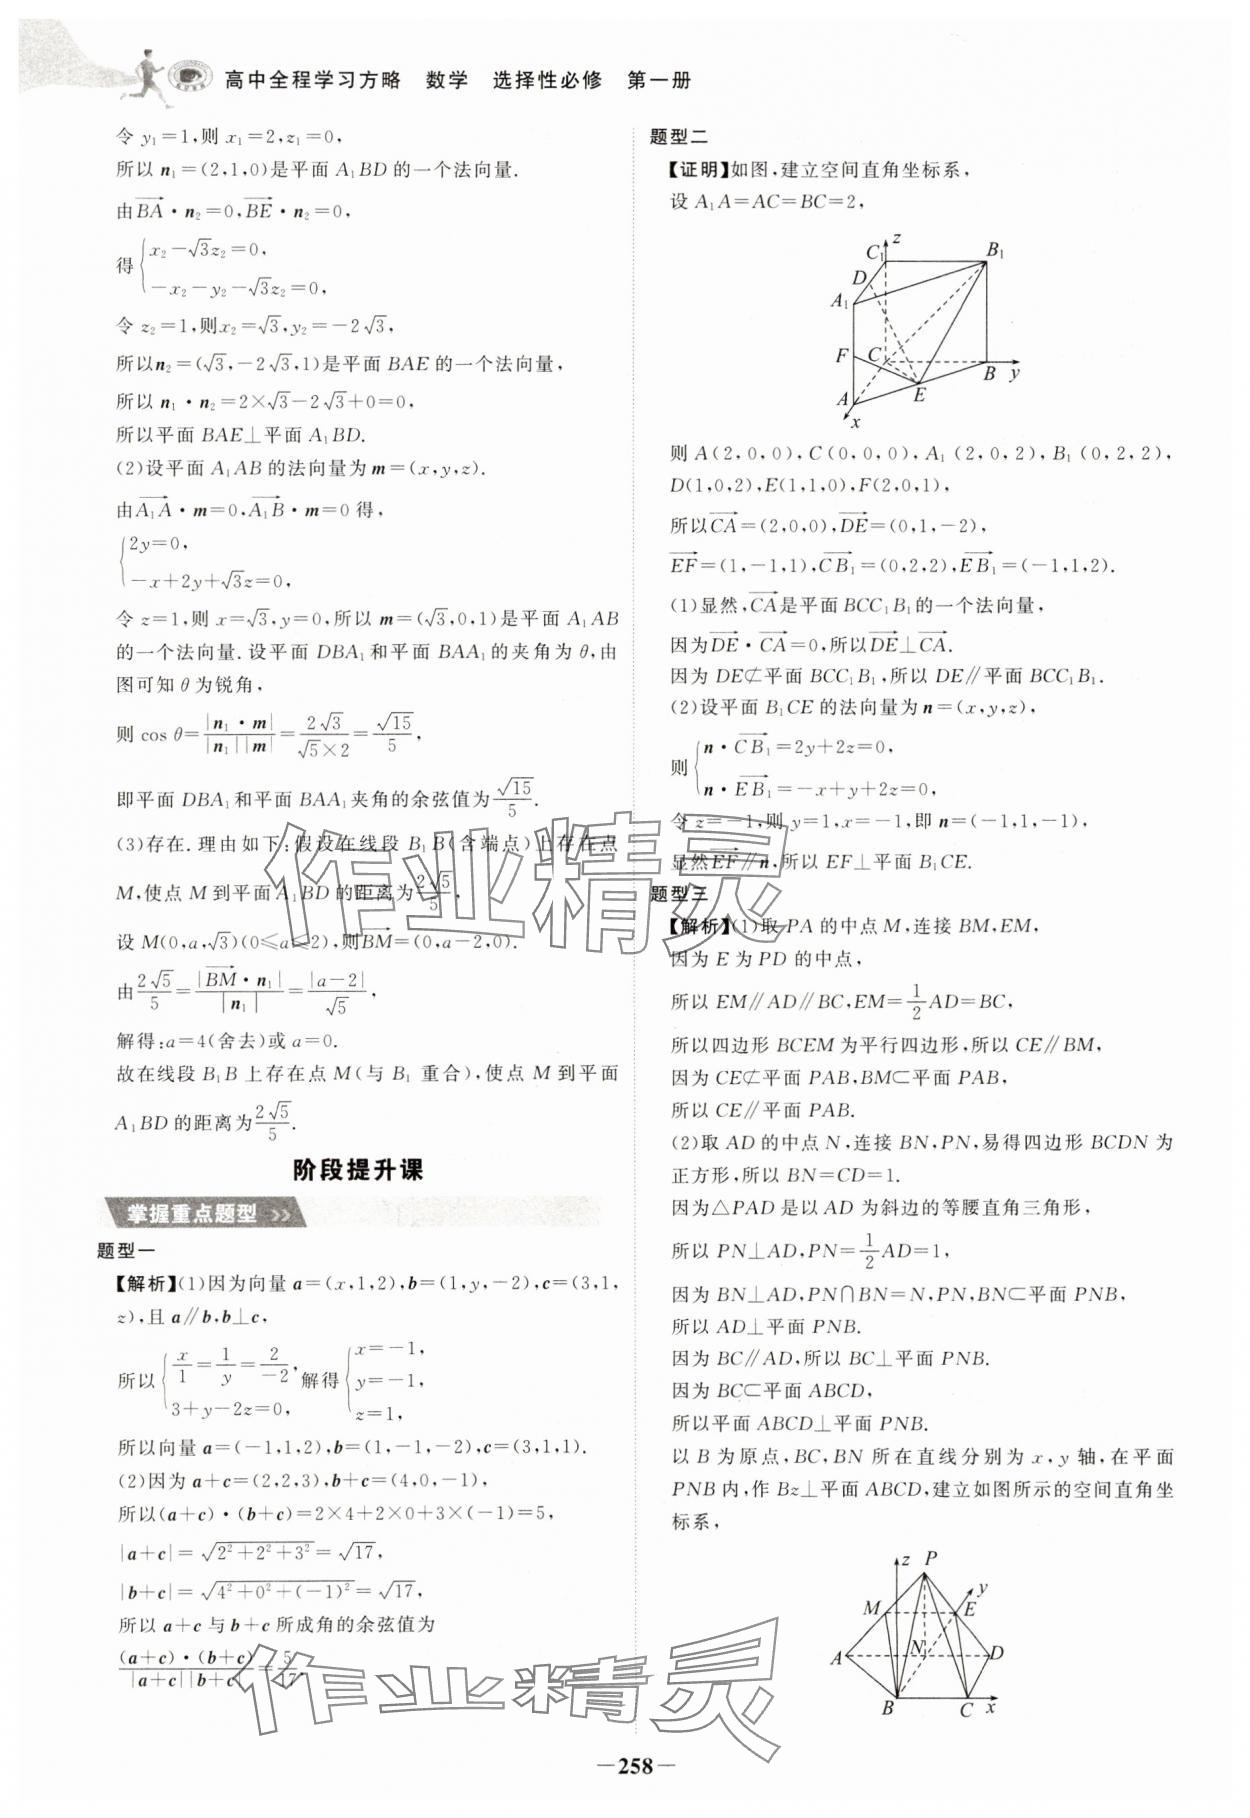 高中全程学习方略 数学 选择性必修 第一册
令 y₁=1,则 x₁=2,z₁=0,
所以 n₁=(2,1,0)是平面 A₁BD 的一个法向量.
由$\overrightarrow{BA}$·n₂=0,$\overrightarrow{BE}$·n₂=0,
得{x₂-√3z₂=0,
-x₂-y₂-√3z₂=0,
令 z₂=1,则x₂=√3,y₂=-2√3,
所以n₂=(√3,-2√3,1)是平面 BAE 的一个法向量,
所以 n₁·n₂=2×√3-2√3+0=0,
所以平面 BAE⊥平面 A₁BD.
(2)设平面 A₁AB 的法向量为 m=(x,y,z).
由$\overrightarrow{A₁A}$·m=0,$\overrightarrow{A₁B}$·m=0 得,
{2y=0,
-x+2y+√3z=0,
令 z=1,则 x=√3,y=0,所以 m=(√3,0,1)是平面 A₁AB
的一个法向量.设平面 DBA₁和平面 BAA₁的夹角为 θ,由
图可知 θ 为锐角,
则 cos θ=$\frac{|n₁·m|}{|n₁||m|}$=$\frac{2√3}{√5×2}$=$\frac{√15}{5}$,
即平面 DBA₁和平面 BAA₁夹角的余弦值为$\frac{√15}{5}$.
(3)存在.理由如下:假设在线段 B₁B(含端点)上存在点
M,使点 M 到平面 A₁BD 的距离为$\frac{2√5}{5}$,
设 M(0,a,√3)(0≤a≤2),则$\overrightarrow{BM}$=(0,a-2,0).
由$\frac{2√5}{5}$=$\frac{|\overrightarrow{BM}·n₁|}{|n₁|}$=$\frac{|a-2|}{√5}$,
解得:a=4(舍去)或 a=0.
故在线段 B₁B 上存在点 M(与 B₁ 重合),使点 M 到平面
A₁BD 的距离为$\frac{2√5}{5}$.
阶段提升课
掌握重点题型 >>
题型一
【解析】(1)因为向量 a=(x,1,2),b=(1,y,-2),c=(3,1,
z),且 a∥b,b⊥c,
所以{$\frac{x}{1}$=$\frac{1}{y}$=$\frac{2}{-2}$, 3+y-2z=0, 解得{x=-1, y=-1, z=1,
所以向量 a=(-1,1,2),b=(1,-1,-2),c=(3,1,1).
(2)因为 a+c=(2,2,3),b+c=(4,0,-1),
所以(a+c)·(b+c)=2×4+2×0+3×(-1)=5,
|a+c|=$\sqrt{2²+2²+3²}$=√17,
|b+c|=$\sqrt{4²+0²+(-1)²}$=√17,
所以 a+c 与 b+c 所成角的余弦值为
$\frac{(a+c)·(b+c)}{|a+c||b+c|}$=$\frac{5}{17}$.
题型二
【证明】如图,建立空间直角坐标系,
设 A₁A=AC=BC=2,
z
C₁
B₁
D
A₁
F
C
B
y
E
A
x
则 A(2,0,0),C(0,0,0),A₁(2,0,2),B₁(0,2,2),
D(1,0,2),E(1,1,0),F(2,0,1),
所以$\overrightarrow{CA}$=(2,0,0),$\overrightarrow{DE}$=(0,1,-2),
$\overrightarrow{EF}$=(1,-1,1),$\overrightarrow{CB₁}$=(0,2,2),$\overrightarrow{EB₁}$=(-1,1,2).
(1)显然,$\overrightarrow{CA}$是平面 BCC₁B₁的一个法向量,
因为$\overrightarrow{DE}$·$\overrightarrow{CA}$=0,所以$\overrightarrow{DE}$⊥$\overrightarrow{CA}$.
因为 DE⊄平面 BCC₁B₁,所以 DE∥平面 BCC₁B₁.
(2)设平面 B₁CE 的法向量为 n=(x,y,z),
则{n·$\overrightarrow{CB₁}$=2y+2z=0,
n·$\overrightarrow{EB₁}$=-x+y+2z=0,
令 z=-1,则 y=1,x=-1,即 n=(-1,1,-1),
显然$\overrightarrow{EF}$∥n,所以 EF⊥平面 B₁CE.
题型三
【解析】(1)取 PA 的中点 M,连接 BM,EM,
因为 E 为 PD 的中点,
所以 EM∥AD∥BC,EM=$\frac{1}{2}$AD=BC,
所以四边形 BCEM 为平行四边形,所以 CE∥BM,
因为 CE⊄平面 PAB,BM⊂平面 PAB,
所以 CE∥平面 PAB.
(2)取 AD 的中点 N,连接 BN,PN,易得四边形 BCDN 为
正方形,所以 BN=CD=1.
因为△PAD 是以 AD 为斜边的等腰直角三角形,
所以 PN⊥AD,PN=$\frac{1}{2}$AD=1,
因为 BN⊥AD,PN∩BN=N,PN,BN⊂平面 PNB,
所以 AD⊥平面 PNB.
因为 BC∥AD,所以 BC⊥平面 PNB.
因为 BC⊂平面 ABCD,
所以平面 ABCD⊥平面 PNB.
以 B 为原点,BC,BN 所在直线分别为 x,y 轴,在平面
PNB 内,作 Bz⊥平面 ABCD,建立如图所示的空间直角坐
标系,
z
P
y
M
E
A
N
D
B
C
x
作业精灵
作业精灵
—258—